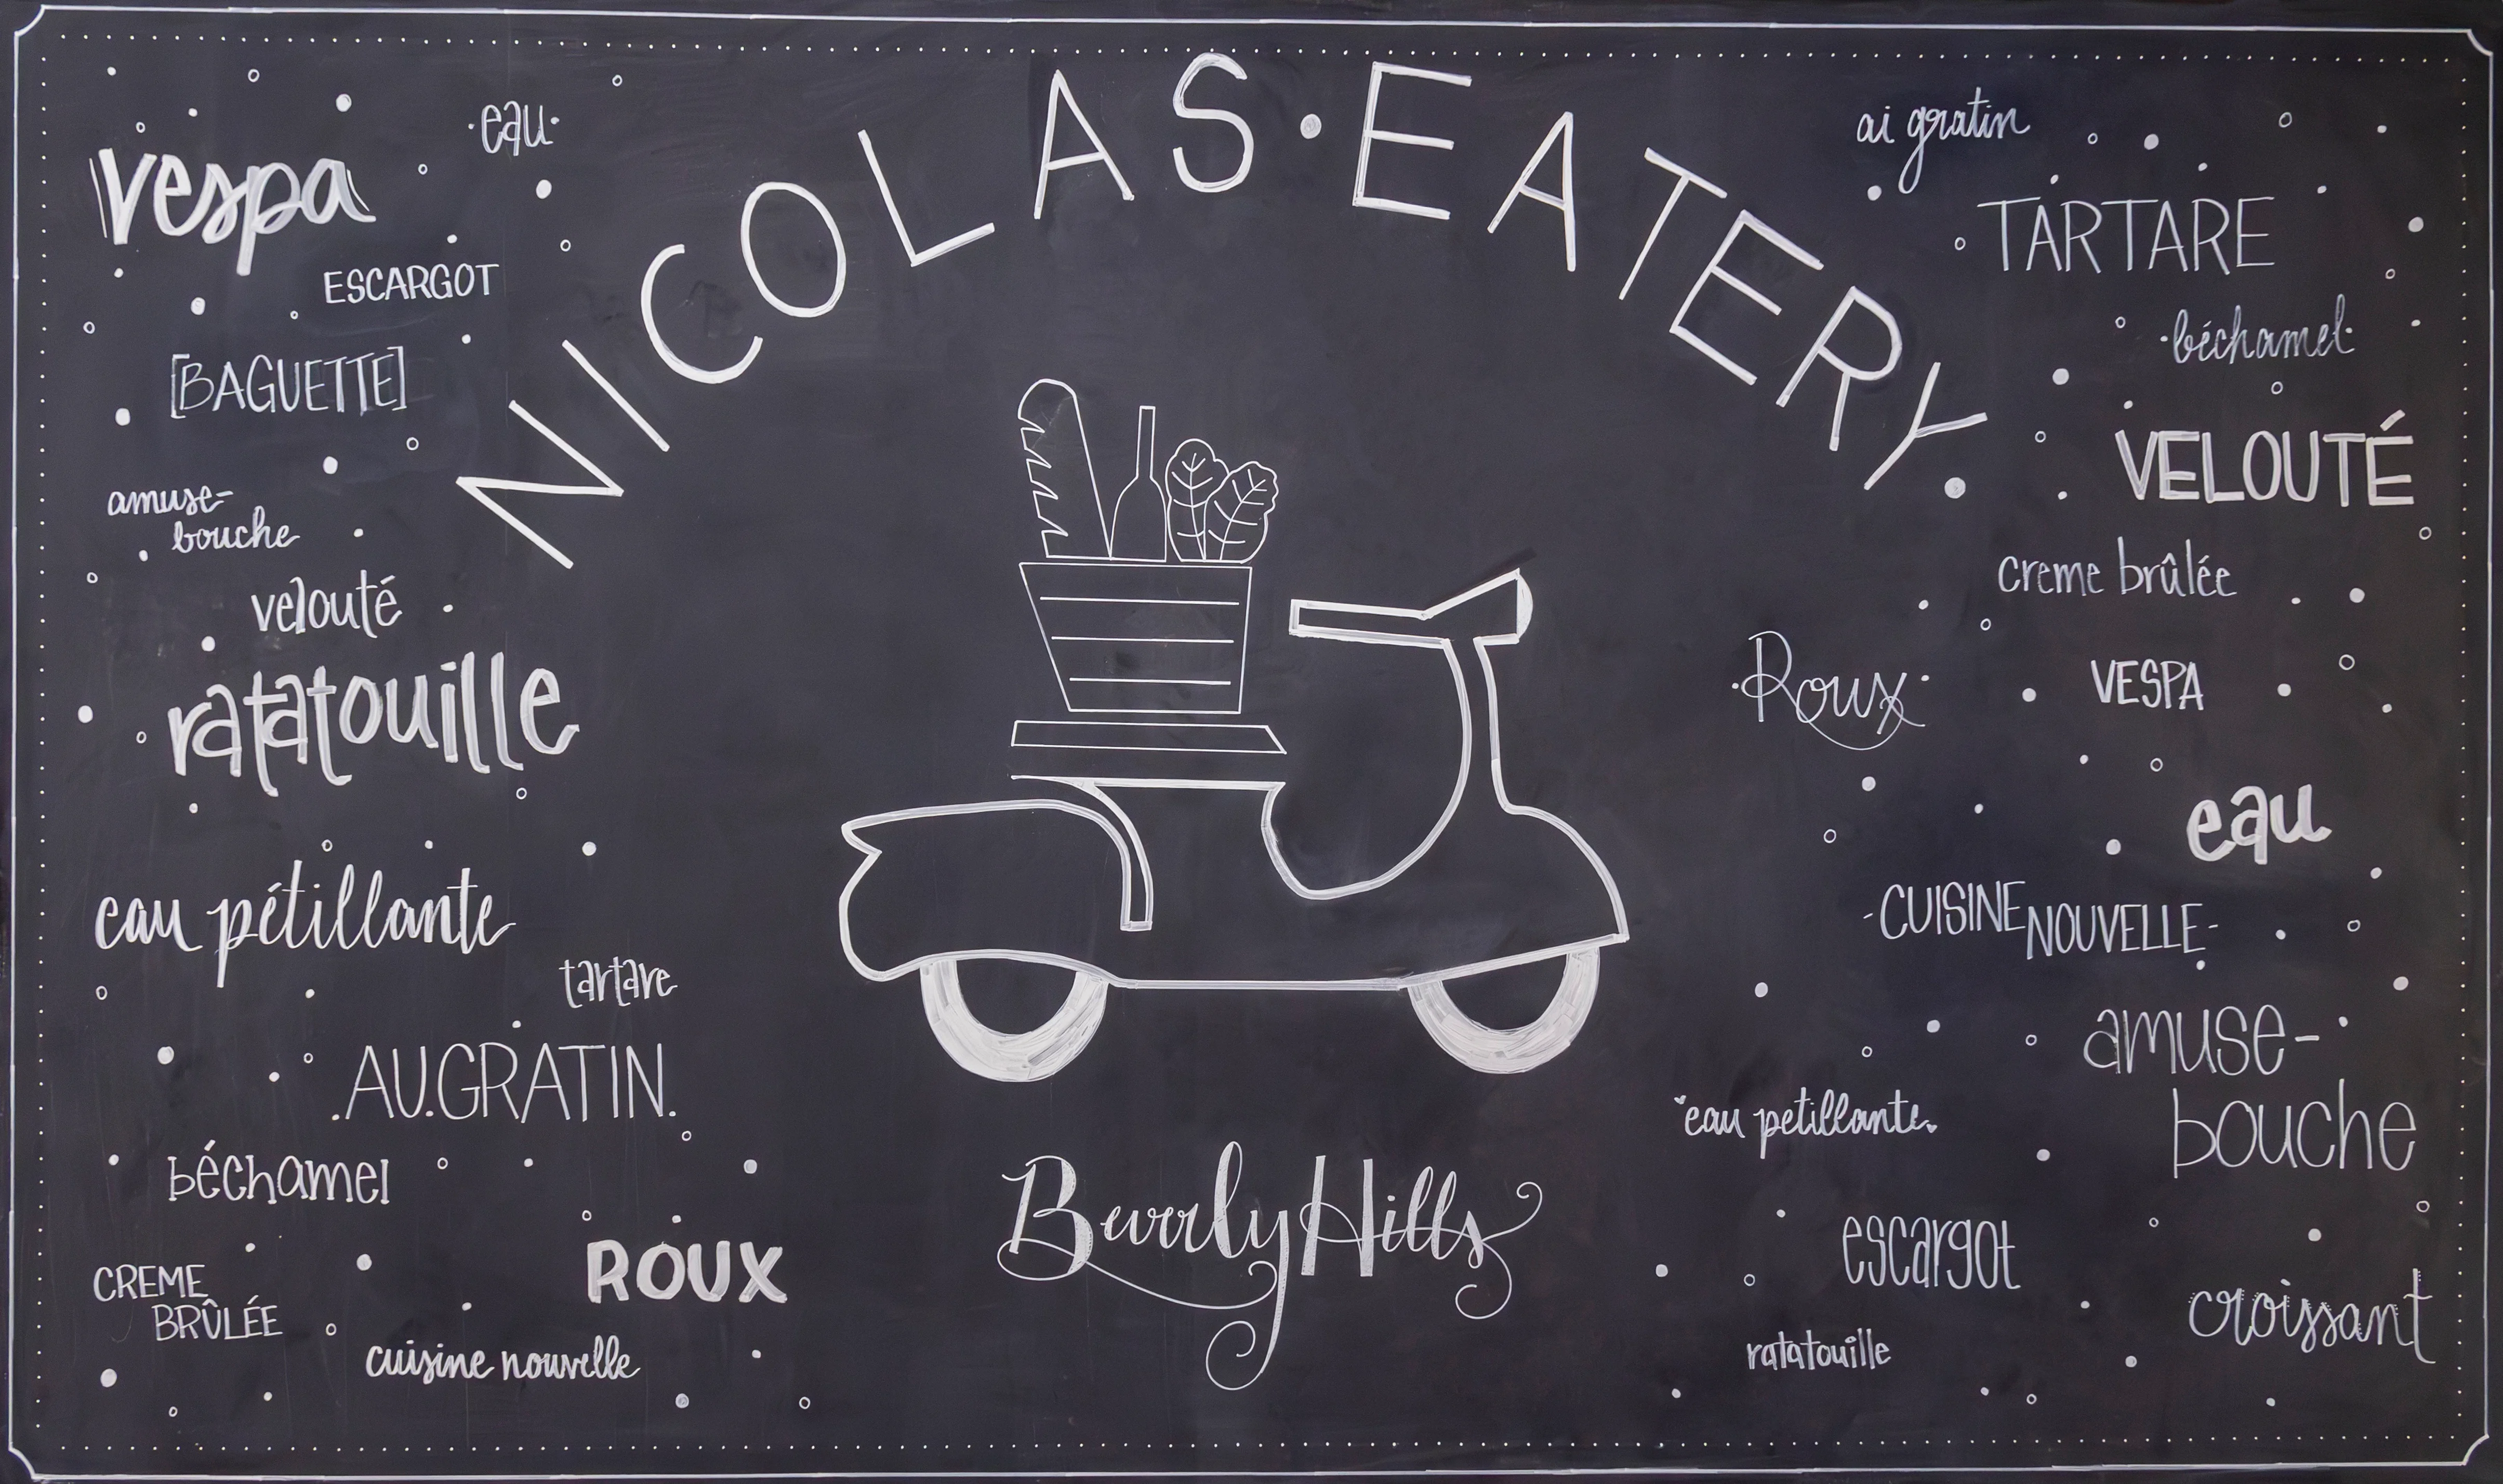 NICOLAS·EATERY·
vespa
·eau·
ESCARGOT
[BAGUETTE]
amuse-
bouche
velouté
ratatouille
eau pétillante
tartare
.AU.GRATIN.
béchamel
CREME
BRÛLÉE
ROUX
cuisine nouvelle
Beverly Hills
ai gratin
TARTARE
·béchamel·
VELOUTÉ
creme brûlée
·Roux·
VESPA
eau
-CUISINE NOUVELLE-
amuse-
bouche
eau petillante
escargot
croissant
ratatouille